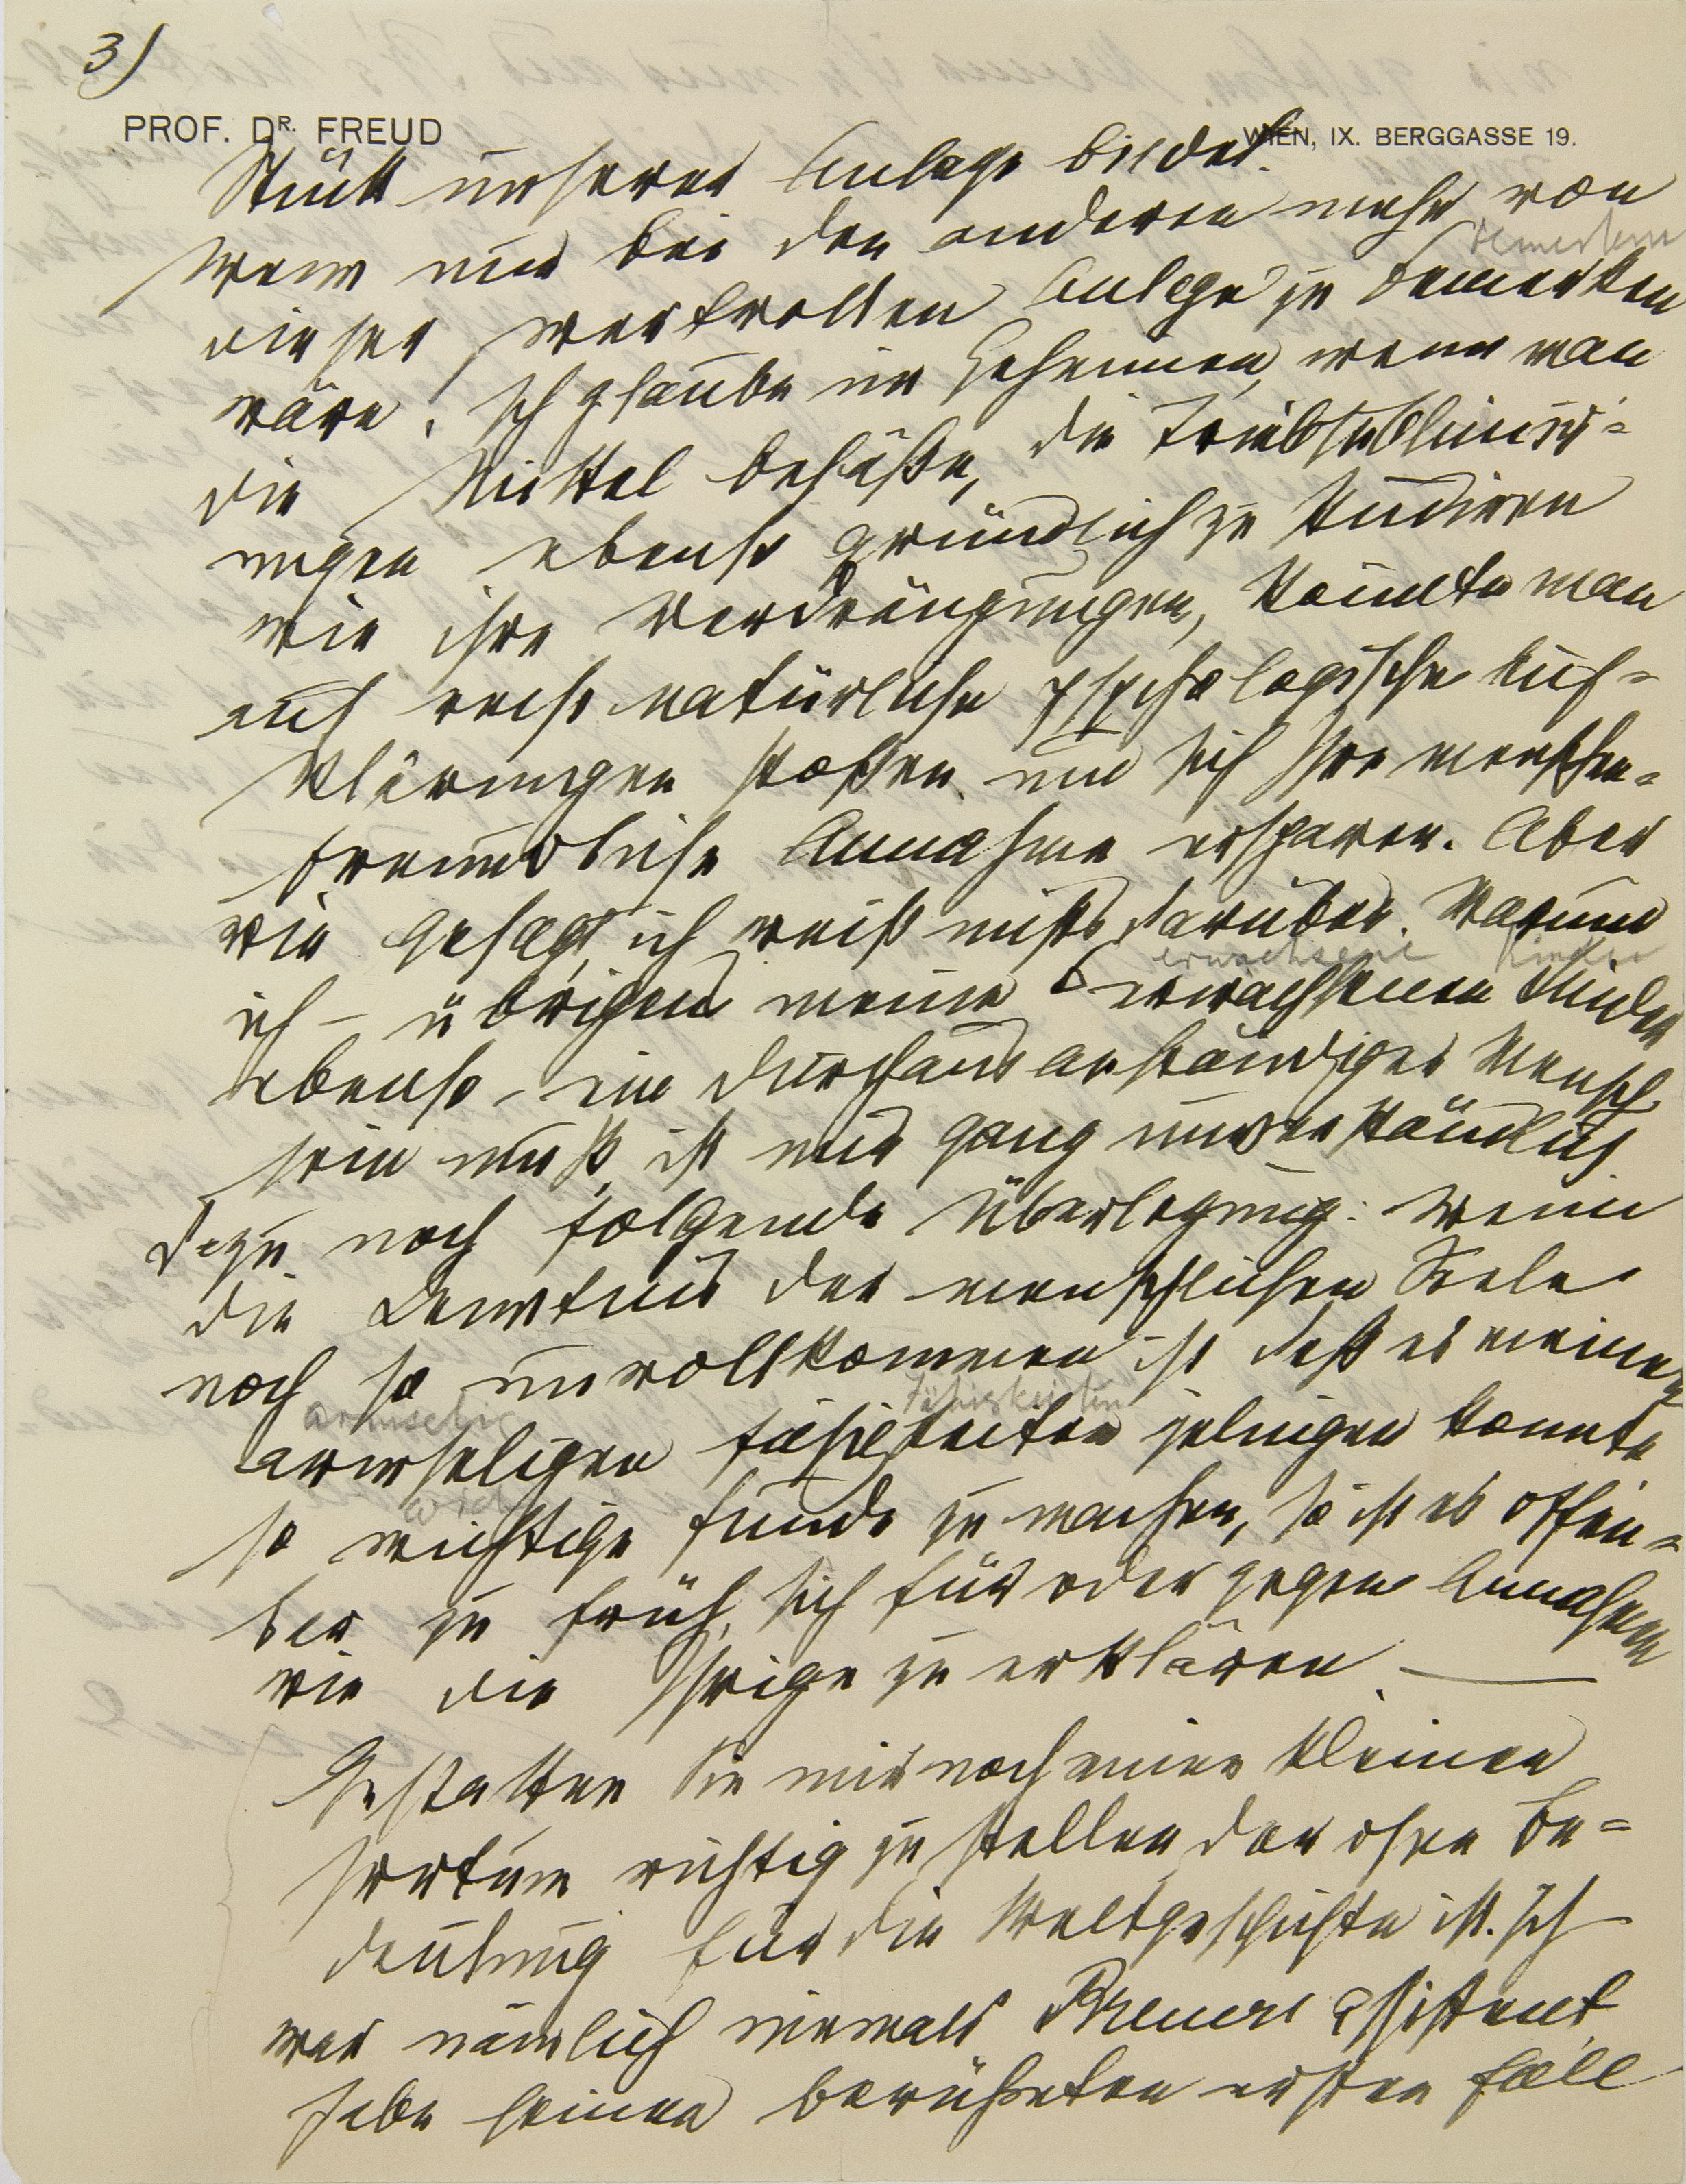 3)
PROF. DR. FREUD WIEN, IX. BERGGASSE 19.
Stück unserer Anlage bildet.
Wenn nur bei den anderen mehr von
bemerken
dieser wertvollen Anlage zu bemerken
wäre! Ich glaube im Geheimen, wenn man
die Mittel besäße, die Triebsublimie-
rungen ebenso gründlich zu studiren
wie ihre Verdrängungen, könnte man
auf recht natürliche psychologische Auf-
klärungen stoßen und sich Ihre menschen-
freundliche Annahme ersparen. Aber
wie gesagt, ich weiß nichts darüber. Warum
erwachsene Kinder
ich – übrigens meine 6 erwachsenen Kinder
ebenso – ein durchaus anständiger Mensch
sein muß, ist mir ganz unverständlich.
Dazu noch folgende Überlegung: Wenn
die Kenntnis der menschlichen Seele
noch so unvollkommen ist daß es meinen
armselig Fähigkeiten
armseligen Fähigkeiten gelingen konnte
wich
so wichtige Funde zu machen, so ist es offen-
bar zu früh, sich für oder gegen Annahmen
wie die Ihrige zu erklären. —
Gestatten Sie mir noch einen kleinen
Irrtum richtig zu stellen, der ohne Be-
deutung für die Weltgeschichte ist. Ich
war nämlich niemals Breuers Assistent,
habe seinen berühmten ersten Fall